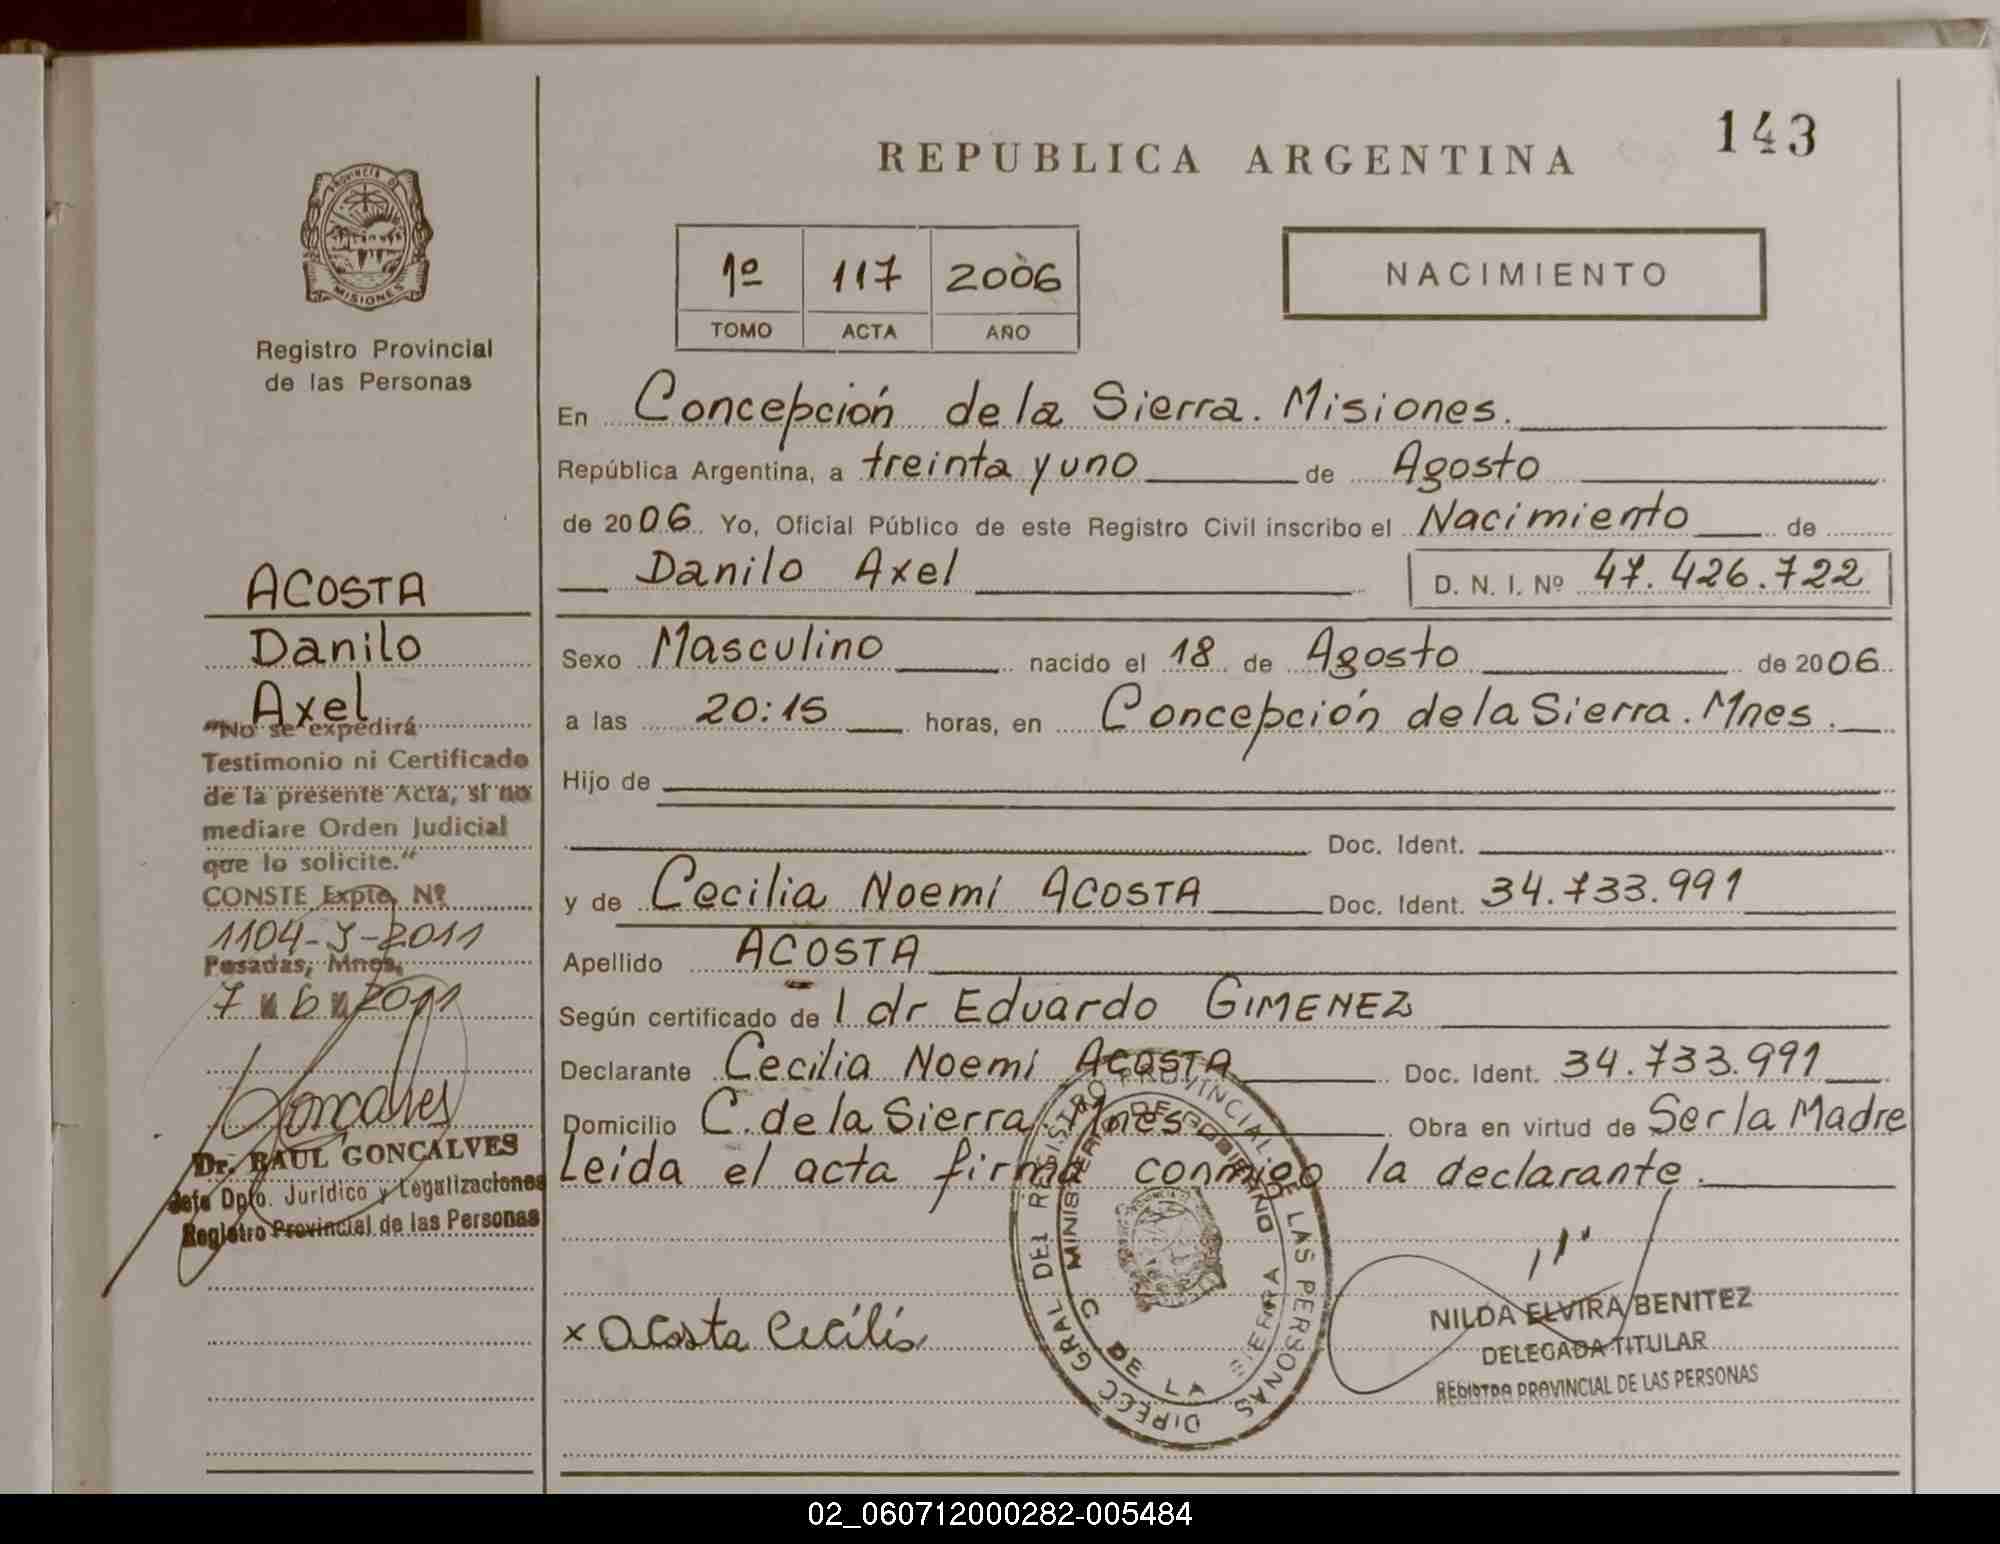 143
REPUBLICA ARGENTINA
PROVINCIA DE
MISIONES
Registro Provincial
de las Personas
1º 117 2006
TOMO ACTA AÑO
NACIMIENTO
En Concepción de la Sierra. Misiones.
República Argentina, a treinta y uno de Agosto
de 2006 Yo, Oficial Público de este Registro Civil inscribo el Nacimiento de
Danilo Axel D. N. I. Nº 47.426.722
Sexo Masculino nacido el 18 de Agosto de 2006
a las 20:15 horas, en Concepción de la Sierra. Mnes.
Hijo de
Doc. Ident.
y de Cecilia Noemí ACOSTA Doc. Ident. 34.733.991
Apellido ACOSTA
Según certificado de l dr Eduardo GIMENEZ
Declarante Cecilia Noemí ACOSTA Doc. Ident. 34.733.991
Domicilio C. de la Sierra. Mnes. Obra en virtud de Ser la Madre
Leida el acta firma conmigo la declarante.
x Acosta Cecilia
DIRECC GRAL DEL REGISTRO PROVINCIAL DE LAS PERSONAS
MINISTERIO DE GOBIERNO
C DE LA SIERRA
NILDA ELVIRA BENITEZ
DELEGADA TITULAR
REGISTRO PROVINCIAL DE LAS PERSONAS
ACOSTA
Danilo
Axel
"No se expedirá
Testimonio ni Certificado
de la presente Acta, si no
mediare Orden Judicial
que lo solicite."
CONSTE Expte. Nº
1104-J-2011
Posadas, Mnes,
7 6 2011
Goncalves
Dr. RAUL GONCALVES
Jefe Dpto. Jurídico y Legalizaciones
Registro Provincial de las Personas
02_060712000282-005484